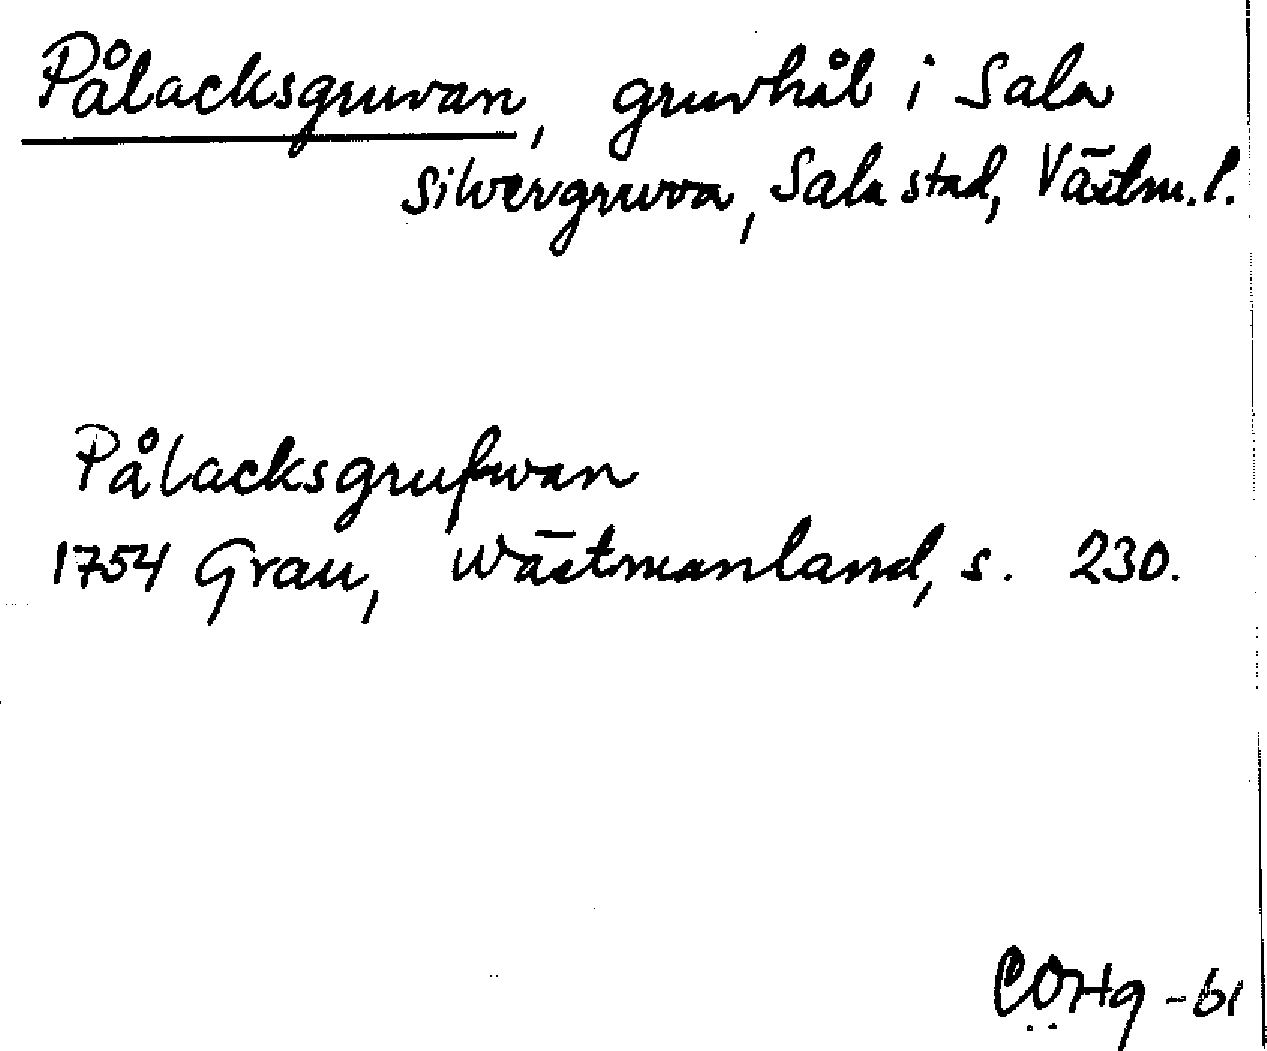 Pålacksgruvan, gruvhål i Sala
Silvergruva, Sala stad, Västm. l.
Pålacksgrufwan
1754 Grau, Wästmanland, s. 230.
COHg -61